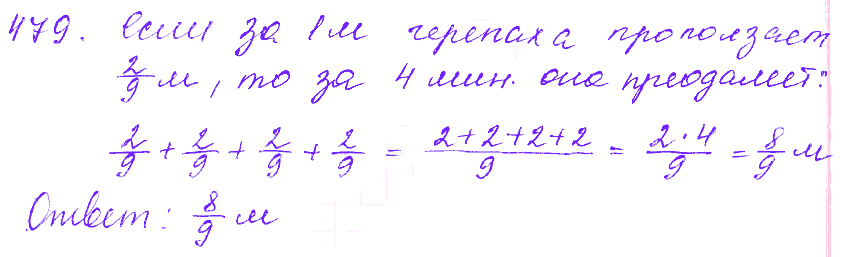 479. Если за 1 м черепаха проползает
2/9 м, то за 4 мин. она преодалеет:
2/9 + 2/9 + 2/9 + 2/9 = (2+2+2+2)/9 = (2·4)/9 = 8/9 м
Ответ: 8/9 м